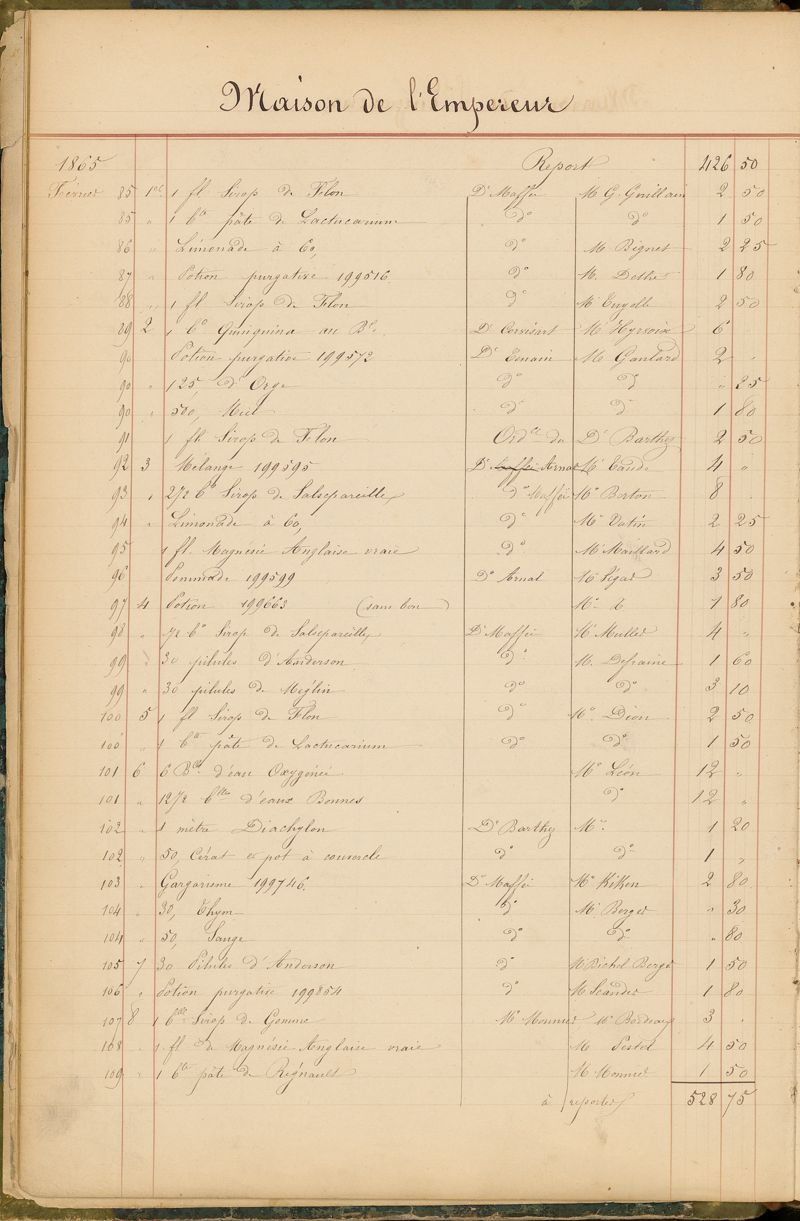 Maison de l'Empereur
1865 Report 426 50
Février 85 1er 1 fl Sirop de Flon Dr Maffei Mr G. Guillain 2 50
85 " 1 bte pâte de Lactucarium do do 1 50
86 " Limonade à 60, do Mr Bignet 2 25
87 " Potion purgative 199516 do Mr 1 80
88 " 1 fl Sirop de Flon do Mr 2 50
89 2 1 bo Quinquina au Bx. Dr Mr 6
90 Potion purgative 199572 Dr Mr Gaulard 2 "
90 " 125, d'Orge do do " 25
90 " 500, Miel do do 1 80
91 1 fl Sirop de Flon Ordce du Dr Barthez 2 50
92 3 Mélange 199595 Dr Maffei Arnal Mr 4 "
93 " 2 1/2 bo Sirop de Salsepareille do Maffei Mr Berton 8
94 " Limonade à 60, do Mr Vatin 2 25
95 1 fl. Magnésie Anglaise vraie do Mr Maillard 4 50
96 Pommade 199599 Dr Arnal Mr 3 50
97 4 Potion 199663 (sans bon) Mr 1 80
98 " 1/2 bo Sirop de Salsepareille Dr Maffei Mr Muller 4 "
99 " 30 pilules d'Anderson do Mr Defraine 1 60
99 " 30 pilules de Méglin do do 3 10
100 5 1 fl Sirop de Flon do Mr Dion 2 50
100 " 1 bte pâte de Lactucarium do do 1 50
101 6 6 Blles d'eau Oxygénée Mr Léon 12 "
101 " 12 1/2 blles d'eaux Bonnes do 12 "
102 " 1 mètre Diachylon Dr Barthez Mr 1 20
102 " 50, Cérat et pot à couvercle do do 1 "
103 " Gargarisme 199746 Dr Maffei Mr Kiken 2 80
104 " 30, Thym do Mr Berger " 30
104 " 50, Sauge do do " 80
105 7 30 Pilules d'Anderson do Mr Bichel Berger 1 50
106 " Potion purgative 199854 do Mr 1 80
107 8 1 blle Sirop de Gomme Mr Monnier Mr Bordeaux 3 "
108 " 1 fl de Magnésie Anglaise vraie Mr Pestel 4 50
109 " 1 bte pâte de Régnault Mr Monnier 1 50
à reporter 528 75